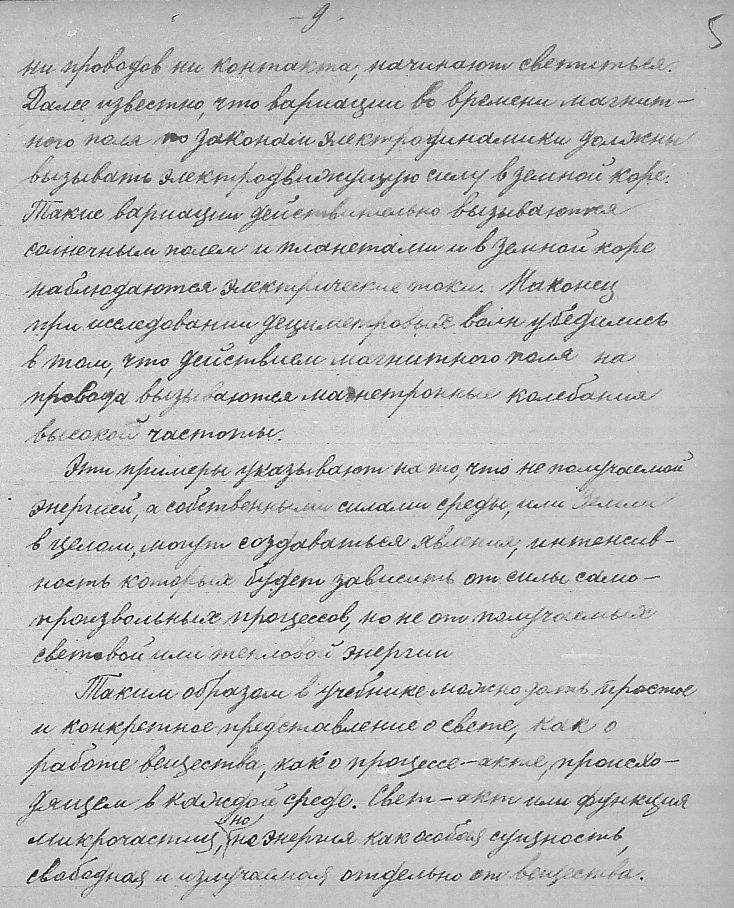 - 9 -
5
ни проводов ни контакта, начинают светиться.
Далее известно, что вариации во времени магнит-
ного поля по законам электродинамики должны
вызывать электродвижущую силу в земной коре.
Такие вариации действительно вызываются
солнечным полем и планетами и в земной коре
наблюдаются электрические токи. Наконец
при исследовании дециметровых волн убедились
в том, что действием магнитного поля на
провода вызываются магнетронные колебания
высокой частоты.
Эти примеры указывают на то, что не получаемой
энергией, а собственными силами среды, или Земли
в целом, могут создаваться явления, интенсив-
ность которых будет зависить от силы само-
произвольных процессов, но не от получаемых
световой или тепловой энергии
Таким образом в учебнике можно дать простое
и конкретное представление о свете, как о
работе вещества, как о процессе-акте, происхо-
дящем в каждой среде. Свет-акт или функция
микрочастиц, но не энергия как особая сущность,
свободная и излучаемая отдельно от вещества.